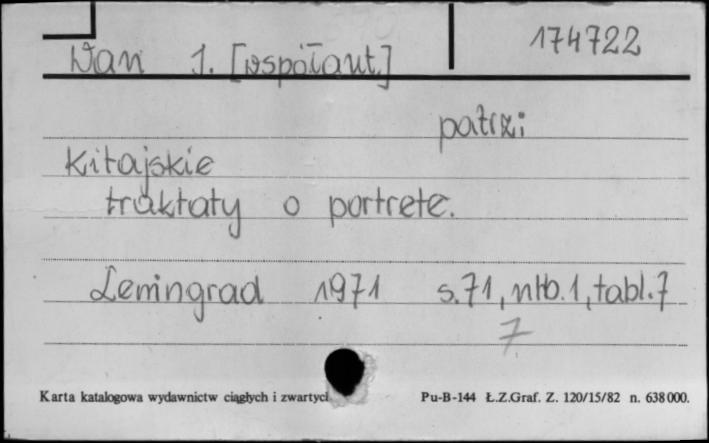 174722
Wan I. [współaut.]
patrz:
Kitajskie
traktaty o portrete.
Leningrad 1971 s.71, nlb.1, tabl.7
7
Karta katalogowa wydawnictw ciągłych i zwartych Pu-B-144 Ł.Z.Graf. Z. 120/15/82 n. 638000.